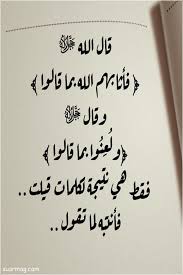 قال الله ﷻ
﴿فأثابهم الله بما قالوا﴾
وقال ﷻ
﴿ولُعِنُوا بما قالوا﴾
فقط هي نتيجة لكلمات قيلت ..
فأنتبه لما تقول ..
xuarmag.com